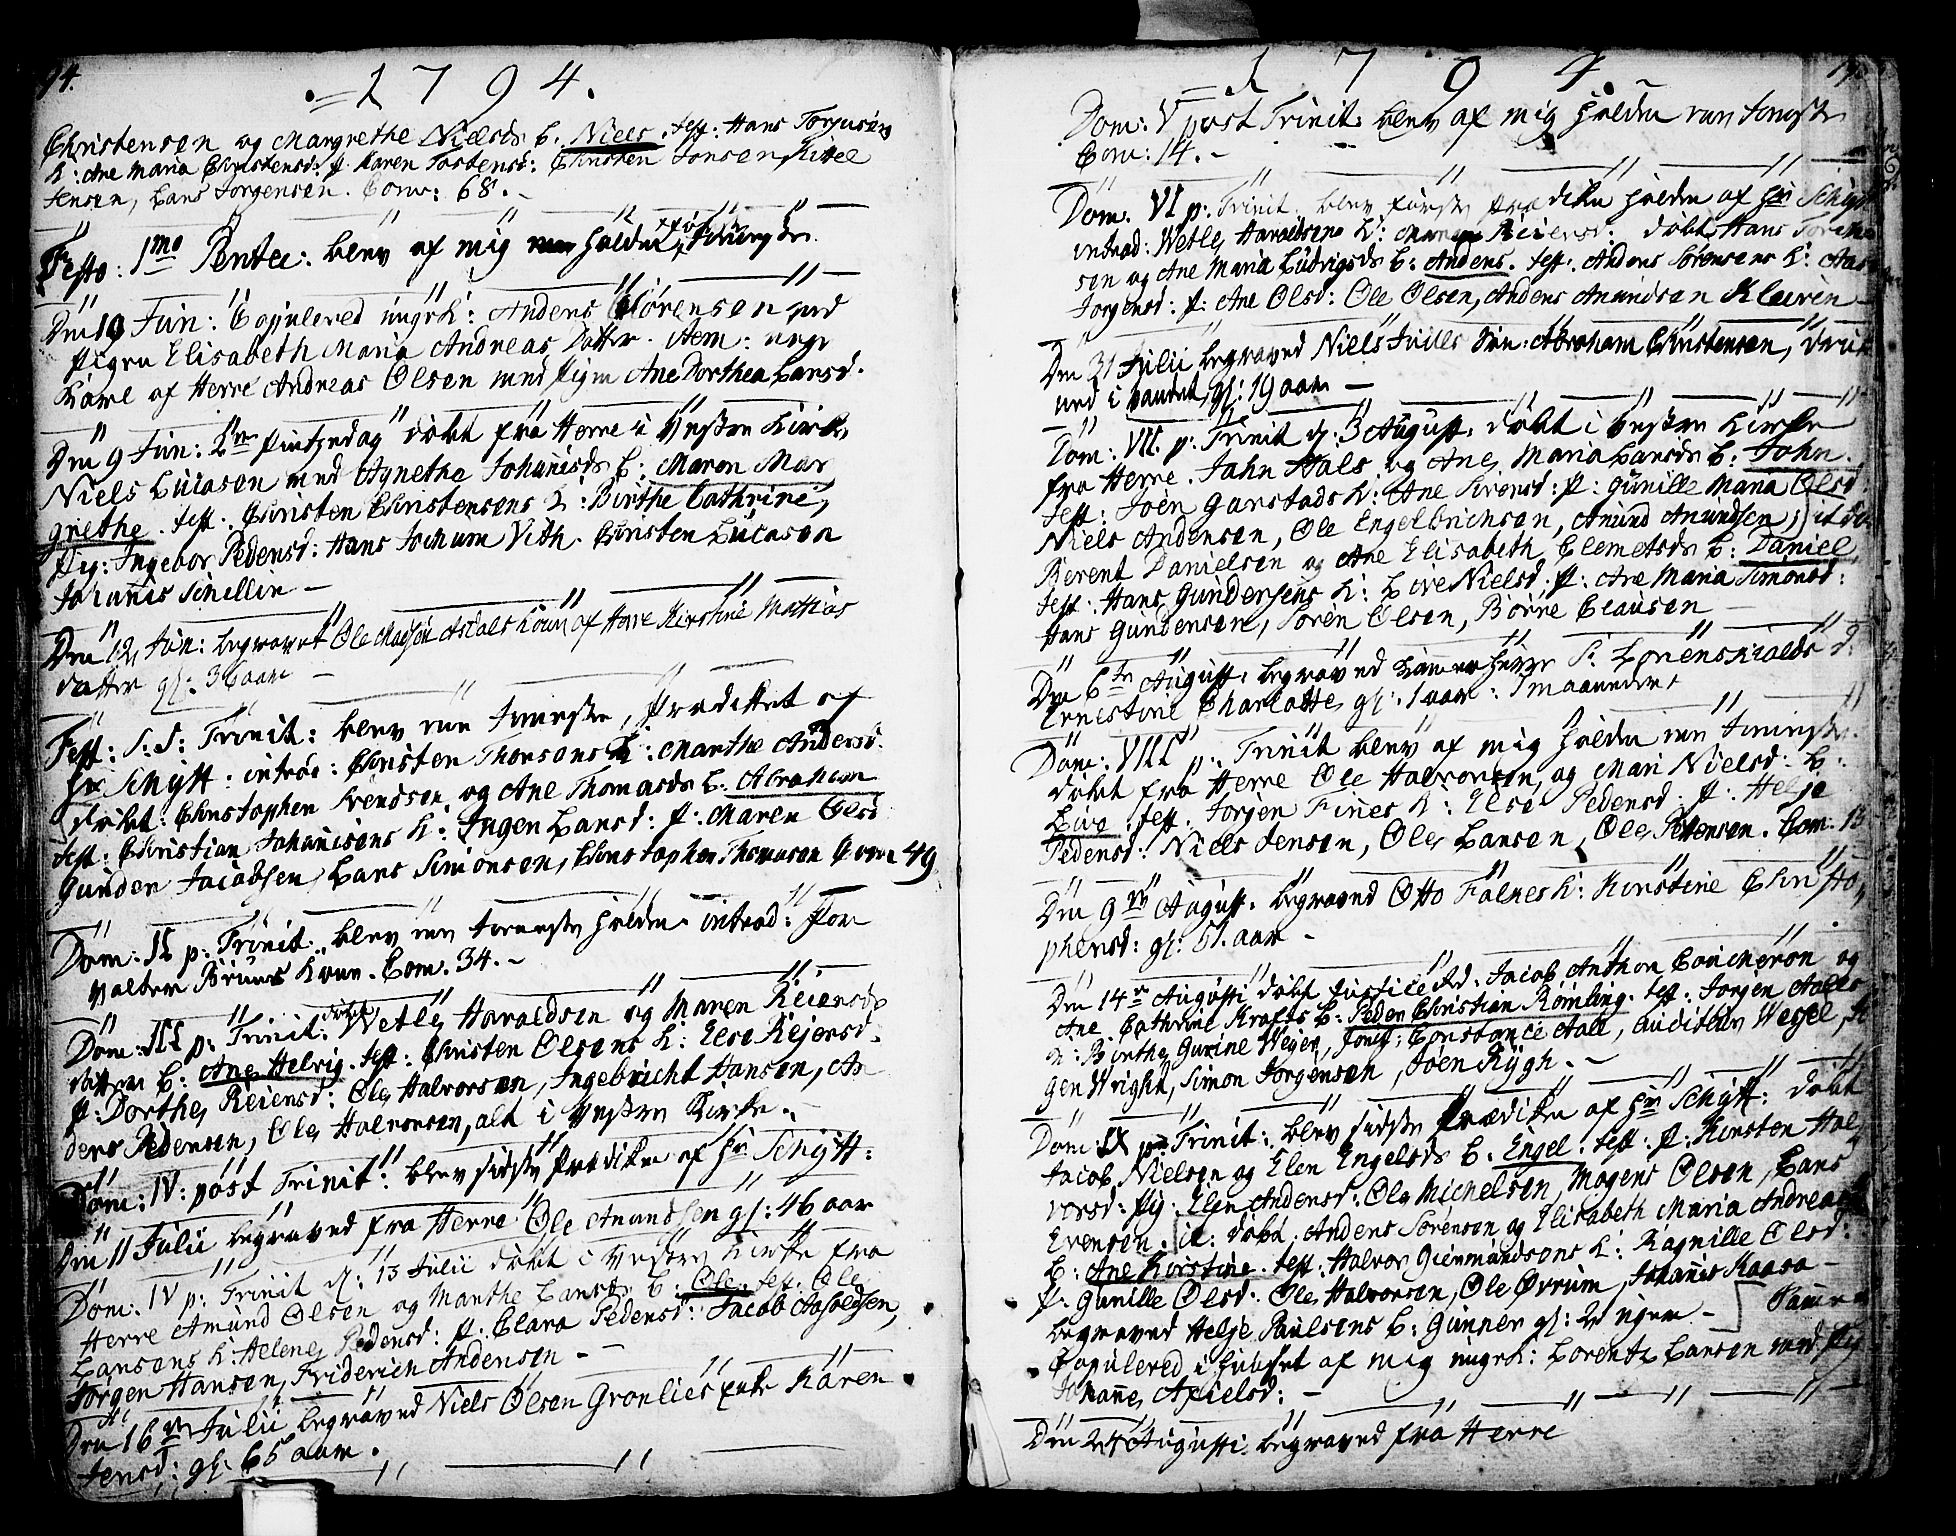 94.
1794.
Christensen og Margrethe Nielsds B: Niels. test: Hans Torgusens
K: Ane Maria Christensd: P. Karen Tostensd: Christen Jonsen, Kittel
Jensen, Lars Jorgensen. Com: 68.
Festo: 1mo Pentec: blev af mig holden
Den 19 Jun: Copulered ungk: Anders Sörensen med
Pigen Elisabeth Maria Andreas Datter. item: unge
Karl af Herre Andreas Olsen med Pigen Ane Dorthea Larsd.
Den 9 Jun: 2den Pintzedag döbt fra Herre i Vestre Kirke
Niels Lucasen med Agnetha Johanisds B: Maren Mar
grethe. test. Christen Christensens K: Birthe Cathrine,
Pig: Ingebor Pedersd: Hans Jochum Vith. Christen Lucasen
Johanis Schellin
Den 12 Jun: begravet Ole Madsen Asdals Kone af Herre Kirstine Mathias
datter gl: 36 aar
Fest: S: S: Trinit: blev ren tieneste, Prædikket af
Hr Schÿtt: introd: Christen Thorsens K: Marthe Andersd.
döbt: Christopher Svendsen og Ane Thomasds B: Abraham
test: Christian Johanisens K: Inger Larsd: P: Maren Olsd
Gunder Jacobsen, Lars Simonsen, Christopher Thomasen Com 49
Dom: II p: Trinit. blev ren tieneste holden. introd: For
valter Bruuns Kone. Com. 34.
Dom: III p: Trinit: döbt Wetle Haraldsen og Maren Reiersds
datter B: Ane Helvig. test: Christen Olsens K: Else Rejersd.
P: Dorthe Reiersd: Ole Halvorsen, Ingebricht Hansen, An
ders Pedersen, Ole Halvorsen, alt i Vestre Kirke.
Dom: IV: post Trinit: blev sidste Prædiken af Hr Schÿtt:
Den 11 Julii begraved fra Herre Ole Amundsen gl: 46 aar
Dom. IV p: Trinit d: 13 Julii döbt i Vestre Kirke fra
Herre Amund Olsen og Marthe Larsds B: Ole. test. Ole
Larsens K: Helene Pedersd: P. Clara Pedersd: Jacob Aasoldsen,
Jorgen Hansen, Friderich Andersen
Den 16de Julii begraved Niels Olsen Gronlies enke Karen
Jensd: gl: 65 aar.
1794.
Dom: V post Trinit. blev af mig holden ren tieneste
Com: 14.
Dom. VI p: Trinit. blev förste prædiken holden af Hr Schÿtt
introd: Wetle Haraldsens K: Maren Reiersd: döbt Hans
sen og Ane Maria Ludvigsds B: Anders. test. Anders Sörensens K:
Jorgensd: P: Ane Olsd: Ole Olsen, Anders Amundsen Kleiven
Den 31 Julii begraved Niels Juules Sön: Abraham Christensen, druk
ned i vandet, gl: 19 aar
Dom: VII. p: Trinit d. 3 August. döbt i Vestre Kirke
fra Herre. Jahn Hals og Ane Maria Larsds B: John.
test: Joen Ganstads K: Ane Siversd: P: Gunille Maria Olsd
Niels Andersen, Ole Engelbrichsen, Amund Amundsen;
Berent Danielsen og Ane Elisabeth Clemetsds B: Daniel
test. Hans Gundersens K: Live Nielsd. P: Ane Maria Simonsd:
Hans Gundersen, Sören Olsen, Börre Clausen
Den 6te August. begraved Kammerherre S: Lövenskiolds d:
Ernestine Charlotte gl: 1 aar: 1 maaneder
Dom: VIII p: Trinit blev af mig holden ren tieneste.
döbt fra Herre Ole Halvorsen, og Mari Nielsd: B:
Live. test. Jorgen Fines K: Else Pedersd. P: Helje
Pedersd: Niels Jensen, Ole Larsen, Ole Petersen. Com. 13
Den 9de August. begraved Otto Falnes K: Kirstine Christo
phersd: gl: 51. aar
Den 14de Augusti döbt Justice Rd. Jacob Anthon Coucheron og
Ane Cathrine Krafts B: Peder Christian Römling. test. Jorgen Aalls
K: Birthe Gurine Weyer, Jomf: Constance Aall, auditeur Wegel,
gen Wright, Simon Jorgensen, Joen Rÿgh.
Dom IX p: Trinit: blev sidste Prædiken af Hr Schÿtt: döbt
Jacob Nielsen og Elen Engelsds B: Engel. test: P: Kirsten Hal
vorsd: Pig: Elen Andersd: Ole Michelsen, Mogens Olsen, Lars
Evensen. it: döbt: Anders Sörensen og Elisabeth Maria Andreas
B: Ane Kirstine. test: Halvor Giermundsens K: Ragnille Olsd.
P. Gunille Olsd. Ole Halvorsen, Ole Övrum, Johanis Kaasa
begraved Helje Paulsens B: Gunner gl: 2 uger
Copulered i huuset af mig ungk: Lorentz Larsen med Pig
Johane Axelsd:
Den 24 Augusti begraved fra Herre